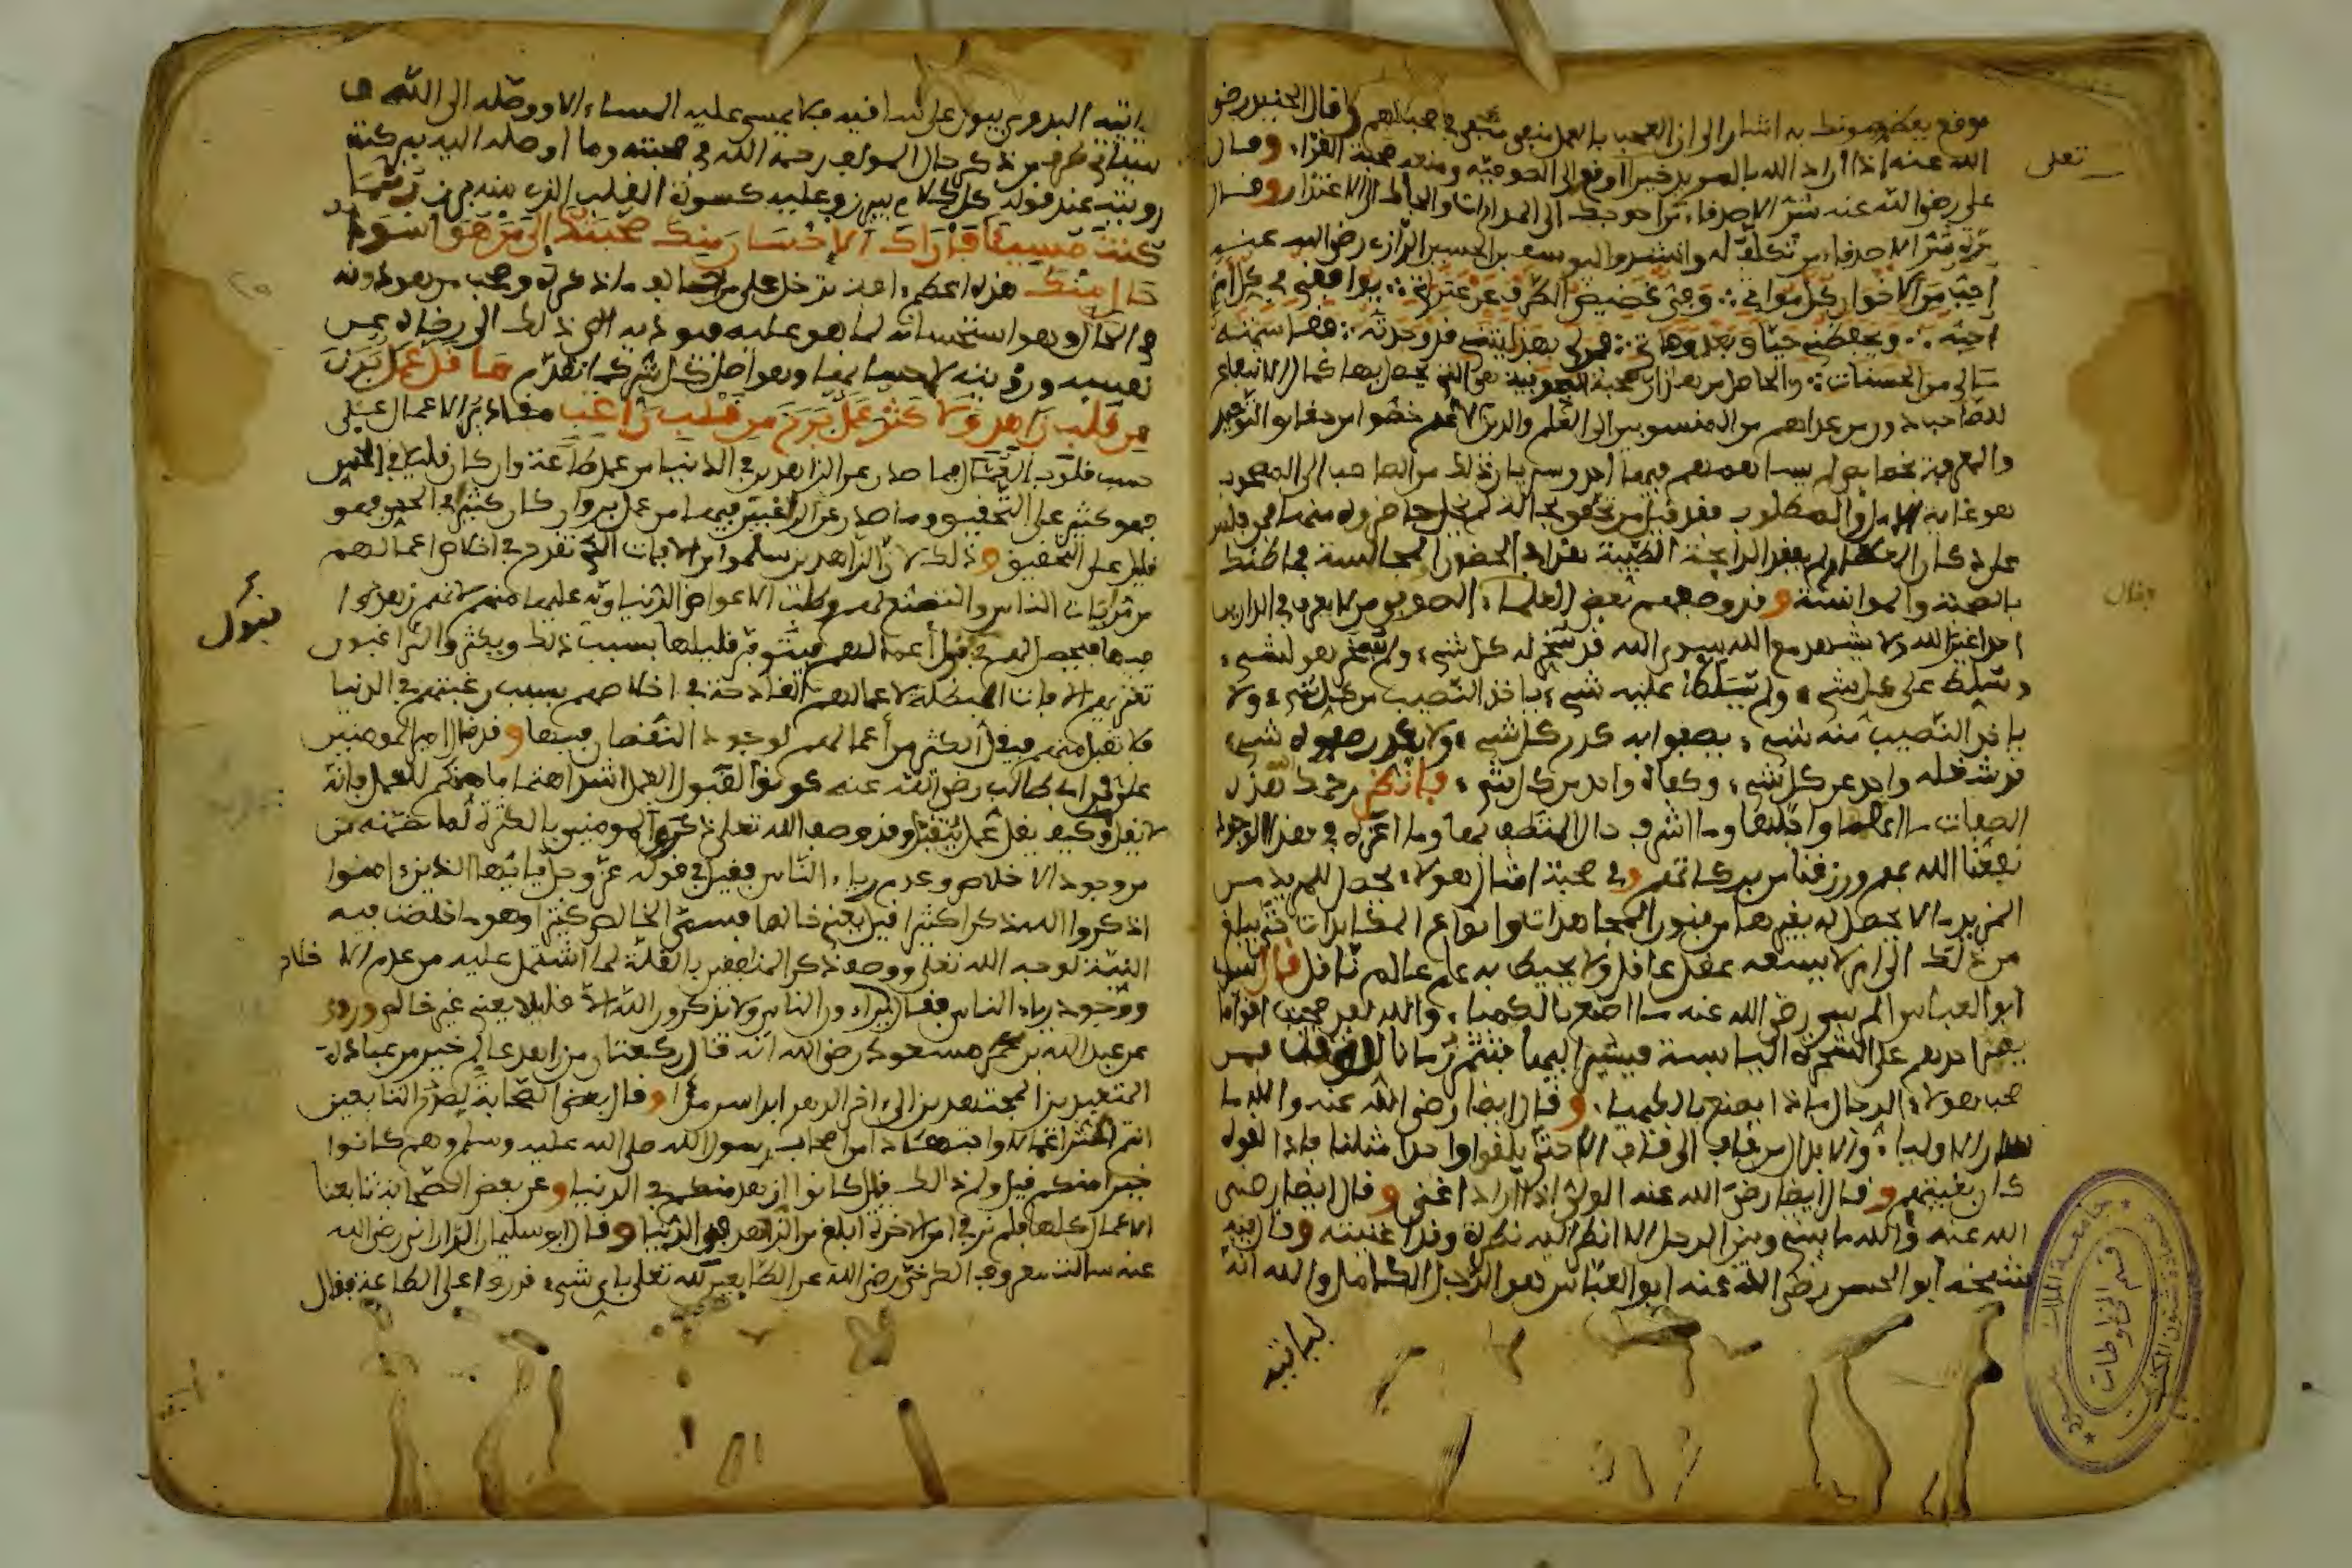 موقع بعضهم وتحفظ به اشار الى ان العجب بالعمل منفي في صحبتهم وقال الجنيد رضي
الله عنه اذا اراد الله بالمريد خيرا اوقعه الى الصوفية ومنعه صحبة القراء وقال
علي رضي الله عنه شر الاصدقاء من احوجك الى المدارات والجأك الى الاعتذار وقال
مرة شر الاصدقاء من تتكلف له وانشدوا ليوسف بن الحسين الرازي رضي الله عنه
احب من الاخوان كل مواتي وفي غضيض الطرف عن عثراتي يوافقني في كل امر
احبه ويحفظني حيا وبعد وفاتي فمن لي بهذا ليتني قد وجدته فقاسمته
مالي من الحسنات والحاصل من هذا ان صحبة الصوفية هي التي يحصل بها كمال الانتفاع
للصاحب دون من عداهم من المنسوبين الى العلم والدين لانهم خصوا من حقايق التوحيد
والمعرفة بخصايص لم يساهمهم فيها احد وسريان ذلك من الصاحب الى المصحوب
هو غاية الامل والمطلوب فقد قيل من تحقق بحالة لم يخل حاضروه منها فمن جلس
على دكان العطار لم يفقد الرايحة الطيبة هذا في الحضور والمجالسة فما ظنك
بالصحبة والموانسة وقد وصفهم بعض العلماء الصوفي من لا يعرف في الدارين
احدا غير الله ولا يشهد مع الله سوى الله قد سخر له كل شيء ولم يسخر هو لشيء
يسلط على كل شيء ولم يسلط عليه شيء ياخذ النصيب من كل شيء ولا
ياخذ النصيب منه شيء يصفو به كدر كل شيء ولا يكدر صفوه شيء
قد شغله واحد عن كل شيء وكفاه واحد من كل شيء فانظر رحمك الله هذه
الصفات ما اعظمها واجلها وما اشرف حال المتصف بها وما اعزه في هذا الوجود
نفعنا الله بهم ورزقنا من بركاتهم وفي صحبة امثال هولاء يحصل للمريد من
المزيد ما لا يحصل له بغيرها من فنون المجاهدات وانواع المكابدات حتى يبلغ
من ذلك الى امر لا يسعه عقل عاقل ولا يحيط به علم عالم ناقل قال سيدي
ابو العباس المرسي رضي الله عنه ما اصنع بالكيميا والله لقد صحبت اقواما
يعبر احدهم على الشجرة اليابسة فيشير اليها فتثمر رمانا للوقت فمن
صحب هولاء الرجال ماذا يصنع بالكيميا وقال ايضا رضي الله عنه والله ما
سار الاوليا والابدال من قاف الى قاف الا حتى يلقوا واحدا مثلنا فاذا لقوه
كان بغيتهم وقال ايضا رضي الله عنه الولي اذا اراد اغنى وقال ايضا رضي
الله عنه والله ما بيني وبين الرجل الا ان انظر اليه نظرة وقد اغنيته وقال فيه
شيخه ابو الحسن رضي الله عنه ابو العباس هو الرجل الكامل والله انه
لياتيه
تعلى
وقال
لياتيه البدوي يبول على ساقيه فلا يمسي عليه المساء الا ووصله الى الله
سياتي طرف من ذكر حال المولف رحمه الله في صحبته وما اوصله اليه بركة
رويته عند قوله كل كلام يبرز وعليه كسوة القلب الذي منه برز ربما
كنت مسيئا فاراك الاحسان منك صحبتك الى من هو اسوأ
حالا منك هذه اعظم افة تدخل على من صحب من هو دونه
في الحال وهو استحسانه لما هو عليه فيوديه ذلك الى رضاه عن
نفسه وروية احسانها وهو اصل كل شر كما تقدم ما قل عمل برز
من قلب زاهد ولا كثر عمل برز من قلب راغب مقادير الاعمال على
حسب قلوب العمال فما صدر عن الزاهد في الدنيا من عمل طاعة وان كان قليلا في الحس
فهو كثير على التحقيق وما صدر عن الراغبين فيها من عمل بر وان كان كثيرا في الحس فهو
قليل على التحقيق وذلك لان الزاهدين سلموا من الافات التي تقدح في اخلاص اعمالهم
من مراءات الناس والتصنع لهم وطلب الاعواض الدنياوية عليها منهم لانهم زهدوا
فيها فيحصل لهم قبول اعمالهم فيتوفر قليلها بسبب ذلك ويكثر والراغبون
تعتريهم الافات المبطلة لاعمالهم القادحة في اخلاصهم بسبب رغبتهم في الدنيا
فلا تقبل منهم فيقل الكثير من اعمالهم لوجود النقصان فيها وقد قال امير المومنين
علي بن ابي طالب رضي الله عنه كونوا لقبول العمل اشد اهتماما منكم للعمل فانه
لا يقل وكيف يقل عمل يتقبل وقد وصف الله تعلى ذكر المومنين بالكثرة لما تضمنه من
من وجود الاخلاص وعدم رياء الناس فقيل في قوله عز وجل يايها الذين امنوا
اذكروا الله ذكرا كثيرا قيل يعني خالصا فسمى الخالص كثيرا وهو ما اخلصت فيه
النية لوجه الله تعلى ووصف ذكر المنافقين بالقلة لما اشتمل عليه من عدم الاخلاص
ووجود رياء الناس فقال يراءون الناس ولا يذكرون الله الا قليلا يعني غير خالص وروي
عن عبد الله بن مسعود رضي الله انه قال ركعتان من زاهد عالم خير من عبادة
المتعبدين المجتهدين الى اخر الدهر ابدا سرمدا وقال بعض الصحابة لصدر التابعين
انتم اكثر اعمالا واجتهادا من اصحاب رسول الله صلى الله عليه وسلم وهم كانوا
خيرا منكم قيل ولم ذلك قال كانوا ازهد منكم في الدنيا وعن بعض الصحابة تابعنا
الاعمال كلها فلم نر في امر الاخرة ابلغ من الزهد في الدنيا وقال ابو سليمان الداراني رضي الله
عنه سالت معروف الكرخي رضي الله عن الطايعين لله تعلى باي شيء قدروا على الطاعة فقال
قبول
جامعة الملك سعود
قسم المخطوطات